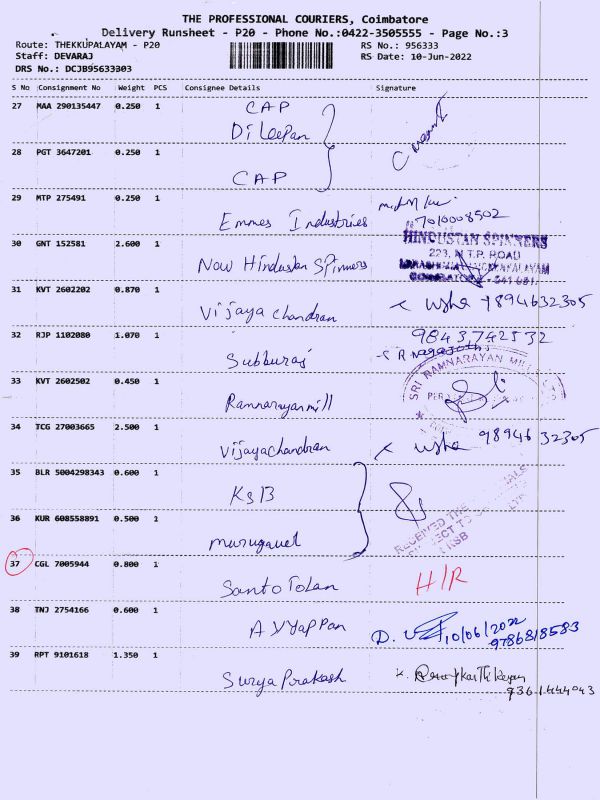 THE PROFESSIONAL COURIERS, Coimbatore
Delivery Runsheet - P20 - Phone No.:0422-3505555 - Page No.:3
Route: THEKKUPALAYAM - P20 RS No.: 956333
Staff: DEVARAJ RS Date: 10-Jun-2022
DRS No.: DCJB95633303
S No Consignment No Weight PCS Consignee Details Signature
27 MAA 290135447 0.250 1 CAP
Dileepan
28 PGT 3647201 0.250 1
CAP
29 MTP 275491 0.250 1
Emmes Industries 7010008502
HINDUSTAN SPINNERS
30 GNT 152581 2.600 1 223, M.T.P. ROAD
Now Hindustan Spinners
COIMBATORE - 641 031.
31 KVT 2602202 0.870 1
Vijaya chandran usha 9894632305
32 RJP 1102080 1.070 1 9843742532
Subburaj
SRI RAMNARAYAN MILL
33 KVT 2602502 0.450 1
Ramnarayan mill
34 TCG 27003665 2.500 1
Vijayachandran usha 9894632305
35 BLR 5004298343 0.600 1
KSB
36 KUR 608558891 0.500 1 RECEIVED THE
SUBJECT TO
Murugavel KSB
37 CGL 7005944 0.800 1
Santo Tolan H/R
38 TNJ 2754166 0.600 1
Ayyappan D. 10/06/2022
9786818583
39 RPT 9101618 1.350 1
Surya Prakash
9361444043